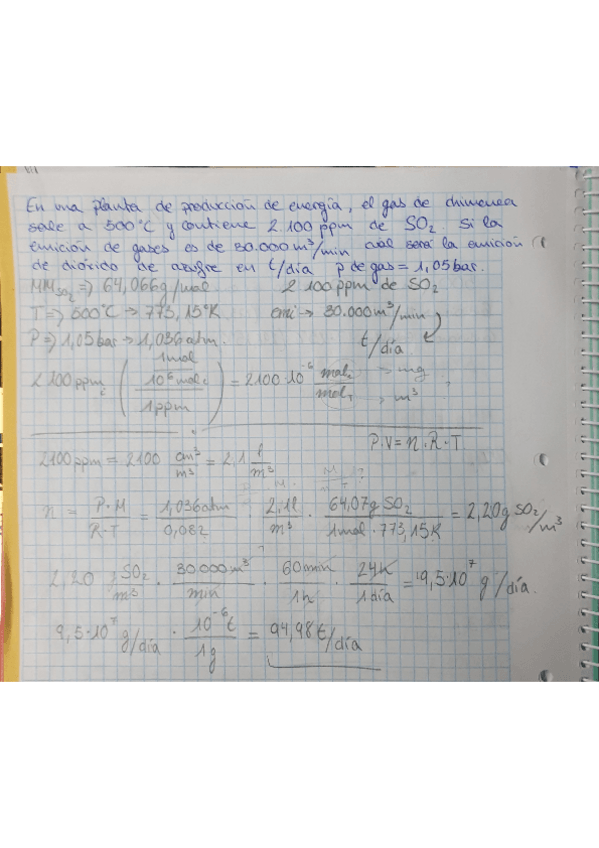 En una planta de producción de energía, el gas de chimenea
sale a 500°C y contiene 2.100 ppm de SO₂. Si la
emición de gases es de 30.000 m³/min cual será la emición
de dióxido de azufre en t/día p de gas = 1,05 bar.
MM SO₂ => 64,066 g/mol 2 100 ppm de SO₂
T => 500°C -> 773,15°K emi -> 30.000 m³/min
P => 1,05 bar -> 1,036 atm. t/día
2 100 ppm (1 mol / 10⁶ mol / 1 ppm) = 2100·10⁻⁶ mol / mol -> mg -> m³ ?
P·V = n·R·T.
2100 ppm = 2100 cm³/m³ = 2,1 l/m³
n = P·M / R·T = 1,036 atm / 0,082 · 2,1 l / m³ · 64,07 g SO₂ / 1 mol · 773,15 K = 2,20 g SO₂/m³
2,20 g SO₂/m³ · 30000 m³/min · 60 min/1 h · 24 h/1 día = 9,5·10⁷ g/día.
9,5·10⁷ g/día · 10⁻⁶ t/1 g = 94,98 t/día